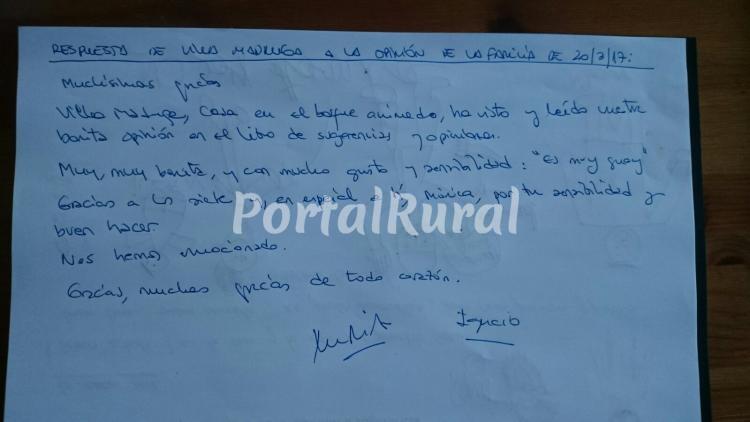 RESPUESTA DE VILLA MADRUGA A LA OPINIÓN DE LA FAMILIA DE 20/7/17:
Muchísimas gracias
Villa Madruga, Casa en el bosque animado, ha visto y leído vuestra
bonita opinión en el libro de sugerencias y opiniones.
Muy, muy bonita, y con mucho gusto y sensibilidad: "Es muy guay"
Gracias a los siete y, en especial a Mónica, por tu sensibilidad y
buen hacer.
Nos hemos emocionado.
Gracias, muchas gracias de todo corazón.
Ignacio
PortalRural